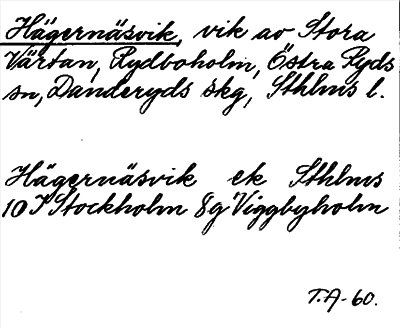 Hägernäsvik, vik av Stora
Värtan, Rydboholm, Östra Ryds
sn, Danderyds skg, Sthlms l.
Hägernäsvik ek Sthlms
10 I Stockholm 8g Viggbyholm
T.A-60.